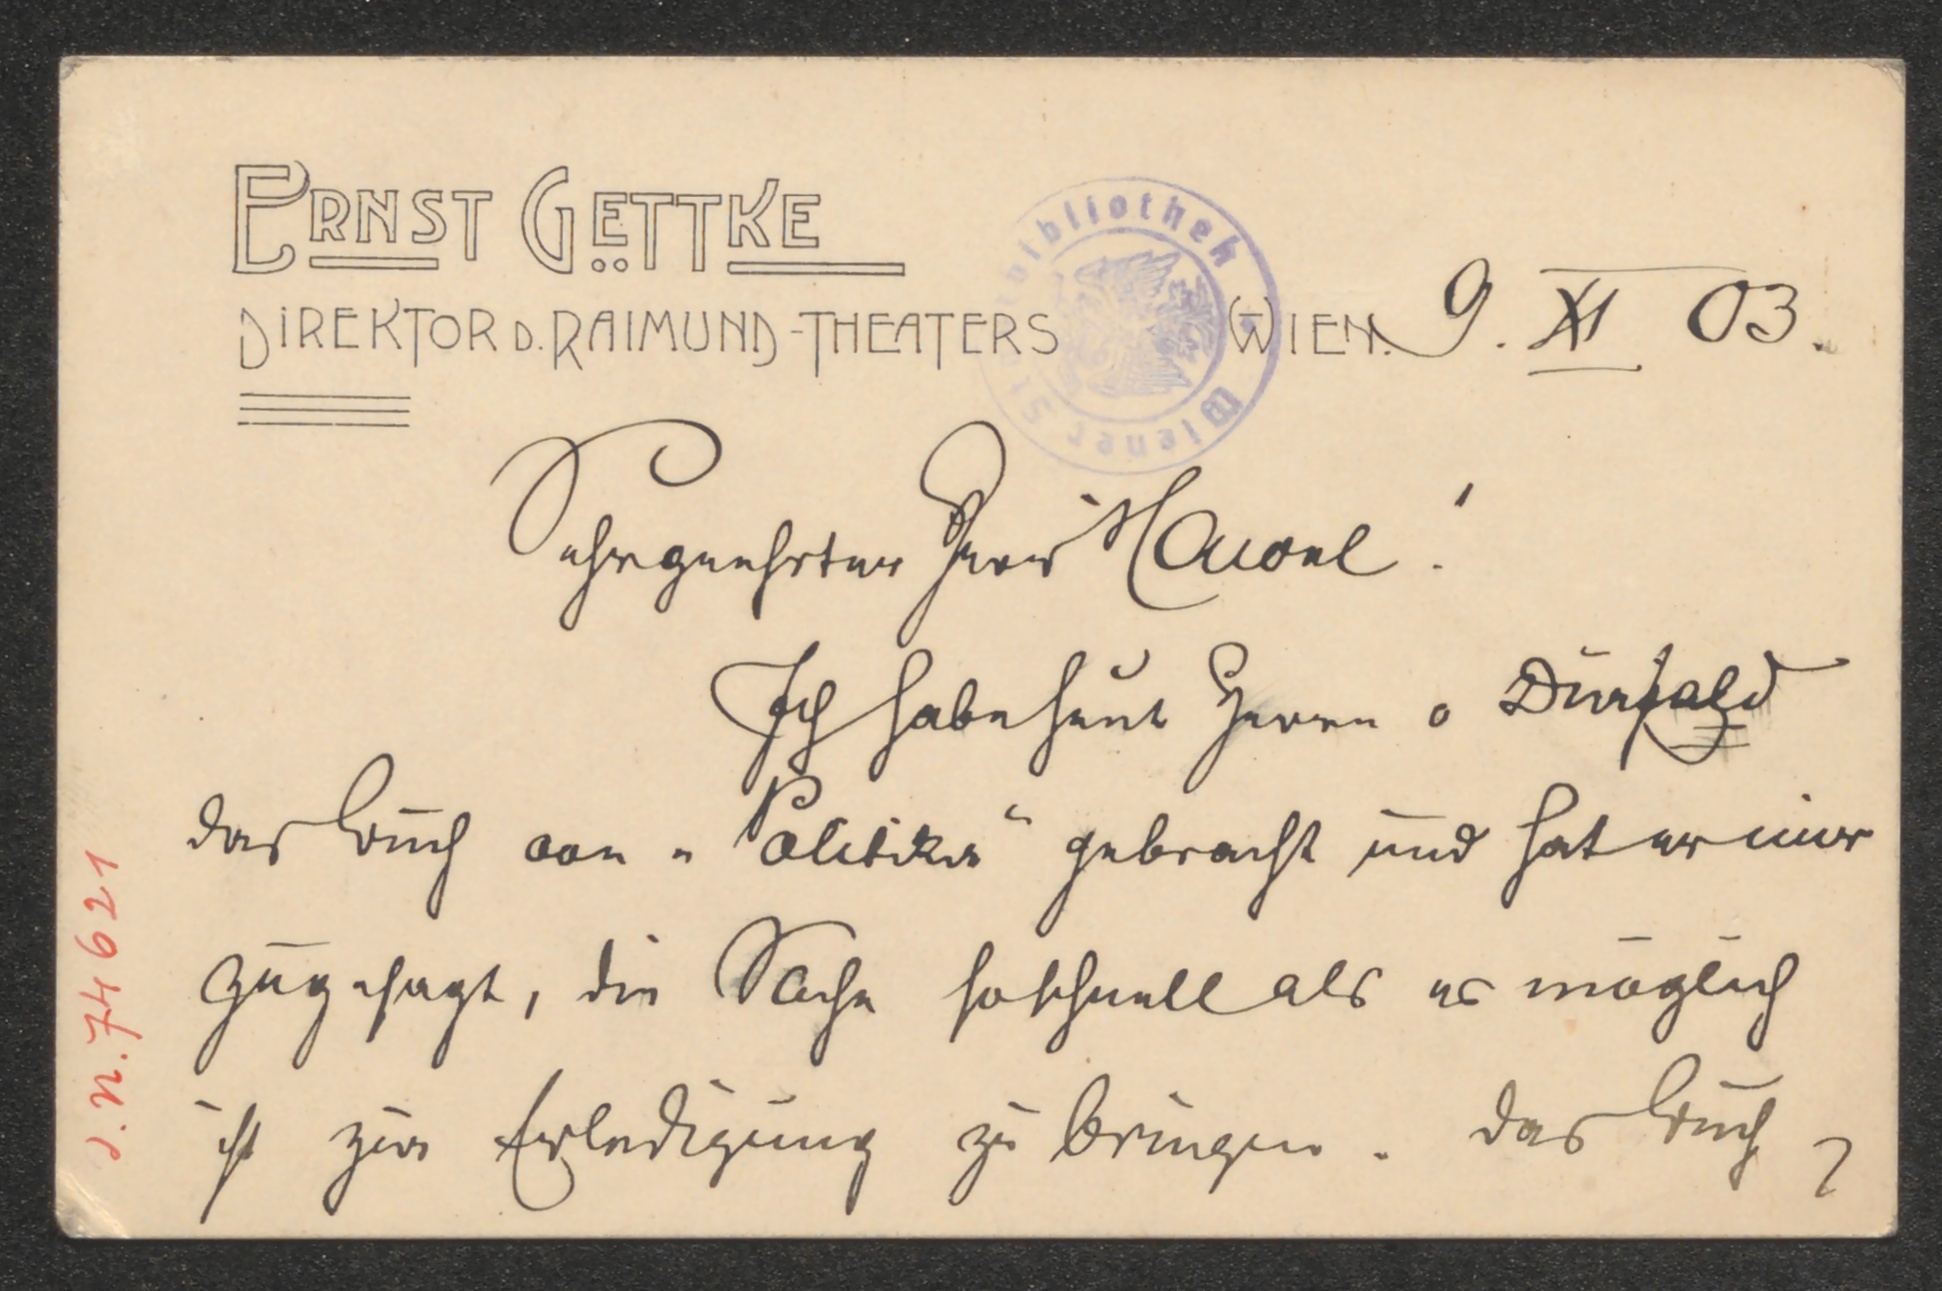 ERNST GETTKE
DIREKTOR D. RAIMUND-THEATERS
WIEN. 9. XI 03.
Wiener Stadtbibliothek
Sehrgeehrter Herr Hawel!
Ich habe heute Herrn
das Buch von „Politiker“ gebracht und hat er mir
zugesagt, die Sache so schnell als es möglich
ist zur Erledigung zu bringen. Das Buch
J.N. 74621